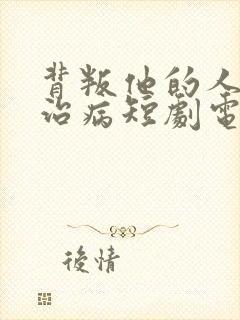 背叛他的人
治病短劇電
後情